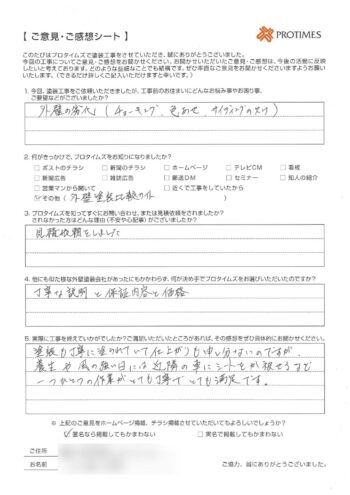 【 ご意見・ご感想シート 】
PROTIMES
このたびはプロタイムズで塗装工事をさせていただき、誠にありがとうございました。
今回の工事についてご意見・ご感想をお聞かせください。お聞かせいただいたご意見・ご感想は、今後の活動に反映
したいと考えております。どのような些細なことでも結構です。ぜひ率直なご意見をお聞かせくださいますようお願い
いたします。(できるだけ詳しくご記入いただけますと幸いです。)
1. 今回、塗装工事をご依頼いただきましたが、工事前のお住まいにどんなお悩み事やお困り事、
ご要望などがございましたか?
外壁の劣化 (チョーキング、色あせ、サイディングの欠け)
2. 何がきっかけで、プロタイムズをお知りになりましたか?
□ ポストのチラシ □ 新聞のチラシ □ ホームページ □ テレビCM □ 看板
□ 新聞広告 □ 雑誌広告 □ 郵送DM □ セミナー □ 知人の紹介
□ 営業マンから聞いて □ 近くで工事をしていたから
☑ その他 ( 外壁塗装比較サイト )
3. プロタイムズを知ってすぐにお問い合わせ、または見積依頼をされましたか?
されなかった方はどんな理由(不安や心配事)がございましたか?
見積依頼をしました
4. 他にも似た様な外壁塗装会社があったにもかかわらず、何が決め手でプロタイムズをお選びいただいたのですか?
丁寧な説明と保証内容と価格
5. 実際に工事を終えていかがでしたか?ご満足いただいたところがあれば、その感想をぜひ具体的にお聞かせください。
塗装も丁寧に塗られていて仕上がりも申し分ないのですが、
養生や風の強い日には近隣の車にシートをかけ被せるなど
一つひとつの作業がとても丁寧でとても満足です。
※ 上記のご意見をホームページ掲載、チラシ掲載させていただいてもよろしいでしょうか?
☑ 匿名なら掲載してもかまわない □ 実名で掲載してもかまわない
ご住所
お名前
ご協力、誠にありがとうございました。